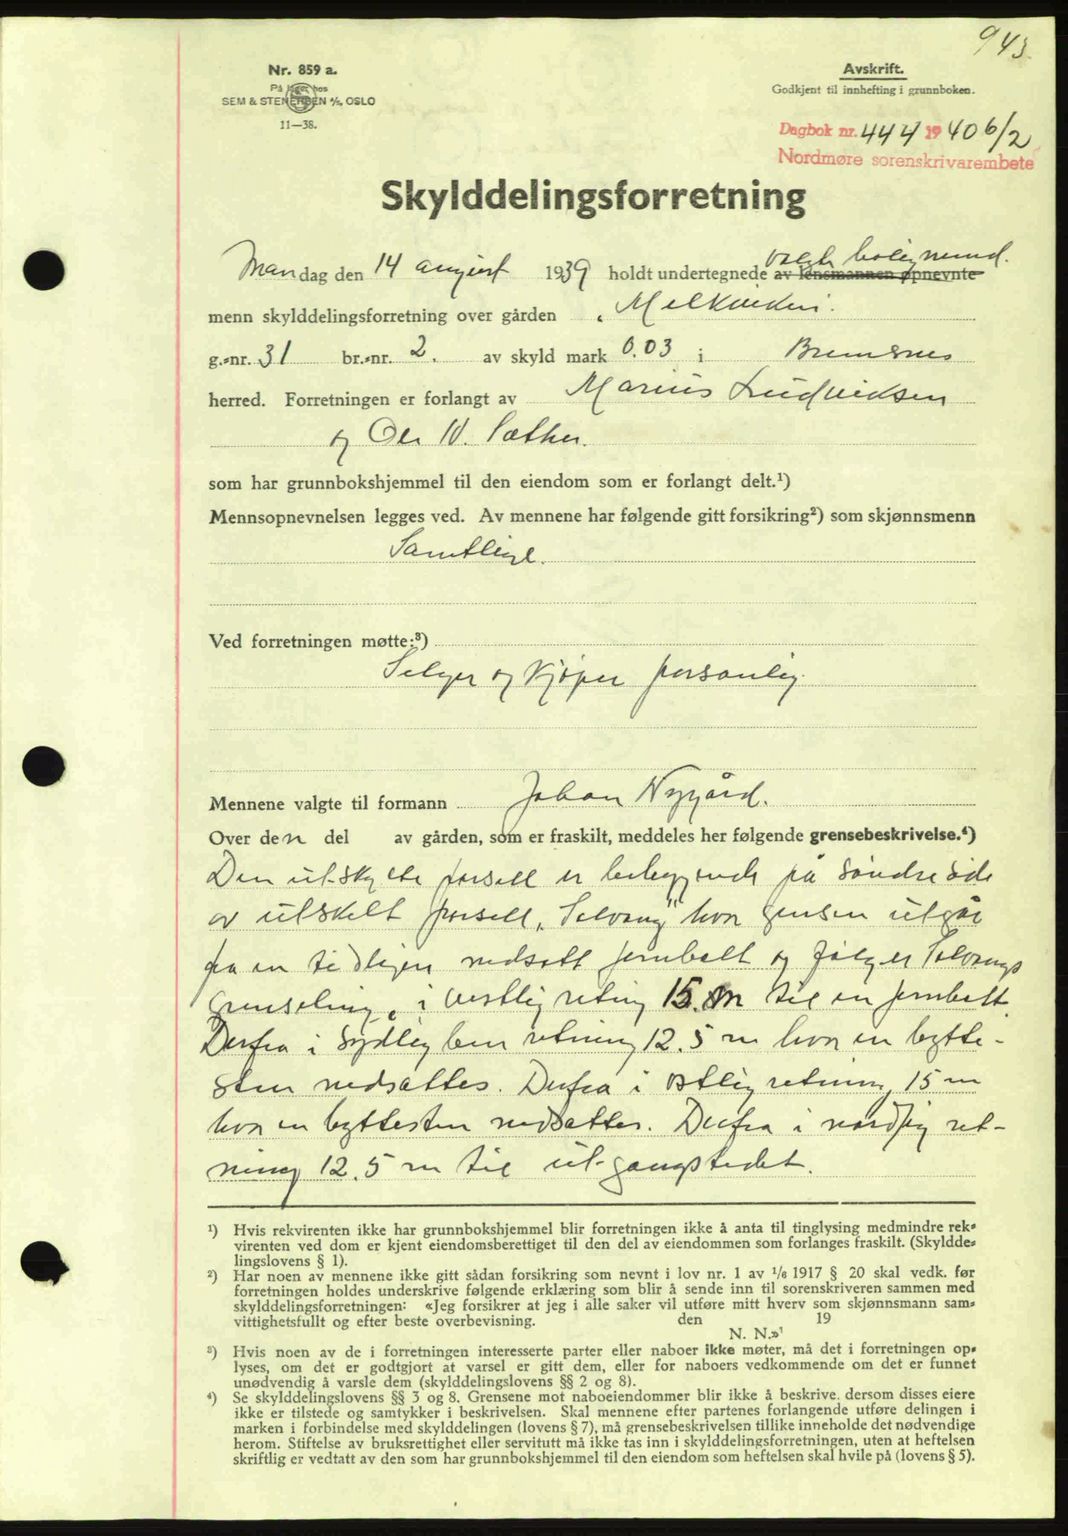 943.
Nr. 859 a.
På lager hos
SEM & STENERSEN A/S, OSLO
11—38.
Avskrift.
Godkjent til innhefting i grunnboken.
Dagbok nr. 444 1940 6/2
Nordmøre sorenskrivarembete
Skylddelingsforretning
valgte bolignemd.
Mandag den 14 august 1939 holdt undertegnede av lensmannen opnevnte
menn skylddelingsforretning over gården Melkvikin.
g.-nr. 31 br.-nr. 2. av skyld mark 0.03 i Bremsnes
herred. Forretningen er forlangt av Marius Ludviksen
og Ole N. Sæther.
som har grunnbokshjemmel til den eiendom som er forlangt delt.¹)
Mennsopnevnelsen legges ved. Av mennene har følgende gitt forsikring²) som skjønnsmenn
Samtlige.
Ved forretningen møtte:³)
Selger og kjøper personlig.
Mennene valgte til formann Johan Nygård.
Over den del av gården, som er fraskilt, meddeles her følgende grensebeskrivelse.⁴)
Den utskyldte parsell er beliggende på søndre side
av utskilt parsell „Solvang" hvor grensen utgår
fra en tidligere nedsatt jernbolt og følger Solvangs
grenseling, i vestlig retning 15. m til en jernbolt.
Derfra i sydlig retning 12.5 m hvor en bytte-
sten nedsattes. Derfra i østlig retning 15 m
hvor en byttesten nedsattes. Derfra i nordlig ret-
ning 12.5 m til utgangstedet.
¹) Hvis rekvirenten ikke har grunnbokshjemmel blir forretningen ikke å anta til tinglysing medmindre rek-
virenten ved dom er kjent eiendomsberettiget til den del av eiendommen som forlanges fraskilt. (Skyldde-
lingslovens § 1).
²) Har noen av mennene ikke gitt sådan forsikring som nevnt i lov nr. 1 av 1/6 1917 § 20 skal vedk. før
forretningen holdes underskrive følgende erklæring som blir å sende inn til sorenskriveren sammen med
skylddelingsforretningen: «Jeg forsikrer at jeg i alle saker vil utføre mitt hverv som skjønnsmann sam-
vittighetsfullt og efter beste overbevisning. den 19
N. N.»¹
³) Hvis noen av de i forretningen interesserte parter eller naboer ikke møter, må det i forretningen op-
lyses, om det er godtgjort at varsel er gitt dem, eller for naboers vedkommende om det er funnet
unødvendig å varsle dem (skylddelingslovens §§ 2 og 8).
⁴) Se skylddelingslovens §§ 3 og 8. Grensene mot naboeiendommer blir ikke å beskrive. dersom disses eiere
ikke er tilstede og samtykker i beskrivelsen. Skal mennene efter partenes forlangende utføre delingen i
marken i forbindelse med skylddelingen (lovens § 7), må grensebeskrivelsen tillike inneholde det nødvendige
herom. Stiftelse av bruksrettighet eller servitutt må ikke tas inn i skylddelingsforretningen, uten at heftelsen
skriftlig er vedtatt av den som har grunnbokshjemmel til den eiendom som heftelsen skal hvile på (lovens § 5).